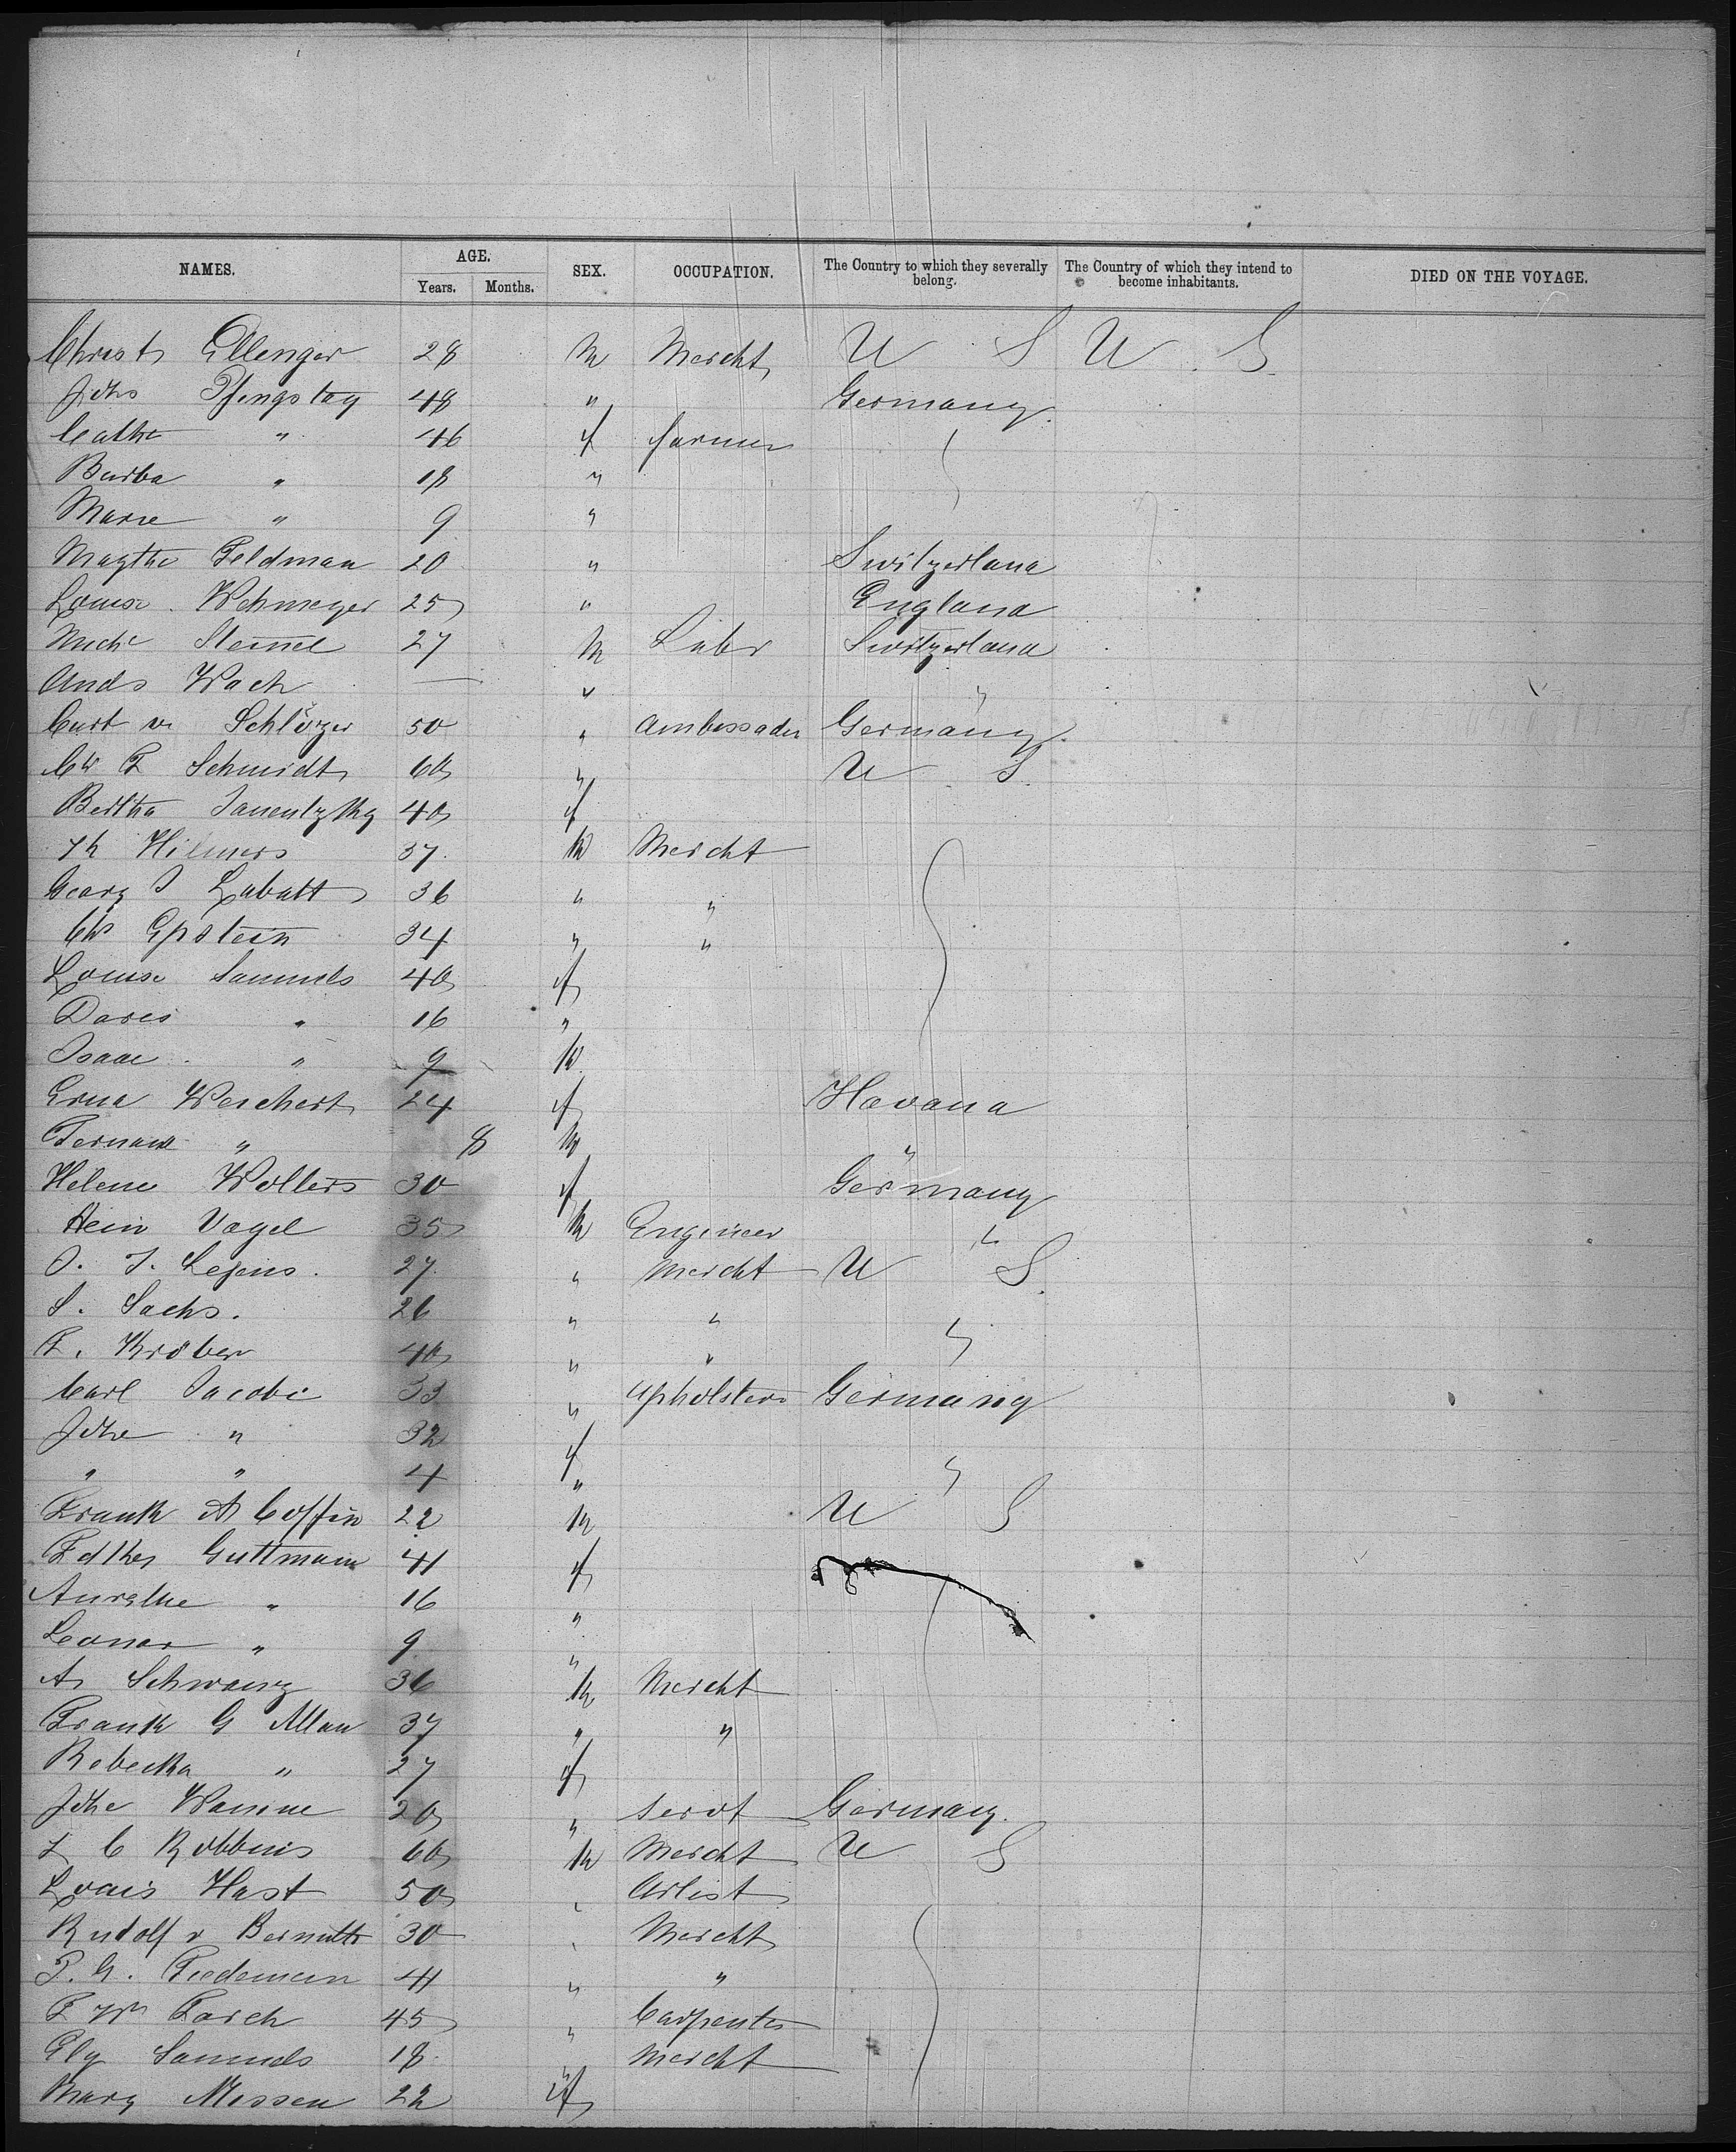 NAMES. AGE. SEX. OCCUPATION. The Country to which they severally belong. The Country of which they intend to become inhabitants. DIED ON THE VOYAGE.
Years. Months.
Christ Ellenger 28 M Mercht U S U S
Johs Pfingstag 48 " Germany
Cathe " 46 f farmer
Barba " 18 "
Marie " 9 "
Magthe Feldman 20 " Switzerland
Louise Wehmeyer 25 " England
Michl 27 M Labr Switzerland
Ands Wach — " "
Curt v. Schlözer 50 " Ambassador Germany
F Schmidt 60 " U S
Bertha 40 f
Th Hilmers 37 M Mercht
Georg J Labatt 36 " "
Epstein 34 " "
Louise Samuels 40 f
Dores " 16 "
Isaac " 9 M
Erna Weichert 24 f Havana
" 8 M "
Helene Wolters 30 f Germany
Hein Vogel 35 M Engineer "
O. J. Lejens. 27 " Mercht U S
S. Sachs. 26 " " "
F. Kröber 40 " "
Carl Jacobi 33 " Upholsterer Germany
Johe " 32 f
" " 4 " "
Frank A Coffin 22 M U S
Guttmann 41 f
Aurelhe " 16 "
Leonor " 9 "
A Schwarz 36 M Mercht
Frank G Allan 37 " "
Rebecka " 27 f
Johe Wamme 20 " servt Germany.
L C Robbins 60 M Mercht U S
Louis Hast 50 " Artist
Rudolf v Bernuth 30 " Mercht
T. G. Tiedemann 41 " "
F Wm Farch 45 " Carpenter
Ely Samuels 18 " Mercht
Mary Messen 22 f